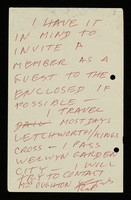 I HAVE IT
IN MIND TO
INVITE A
MEMBER AS A
GUEST TO THE
ENCLOSED IF
POSSIBLE —
I TRAVEL
MOST DAYS
LETCHWORTH/KINGS
CROSS — I PASS
WELWYN GARDEN
CITY — I WILL
TRY TO CONTACT